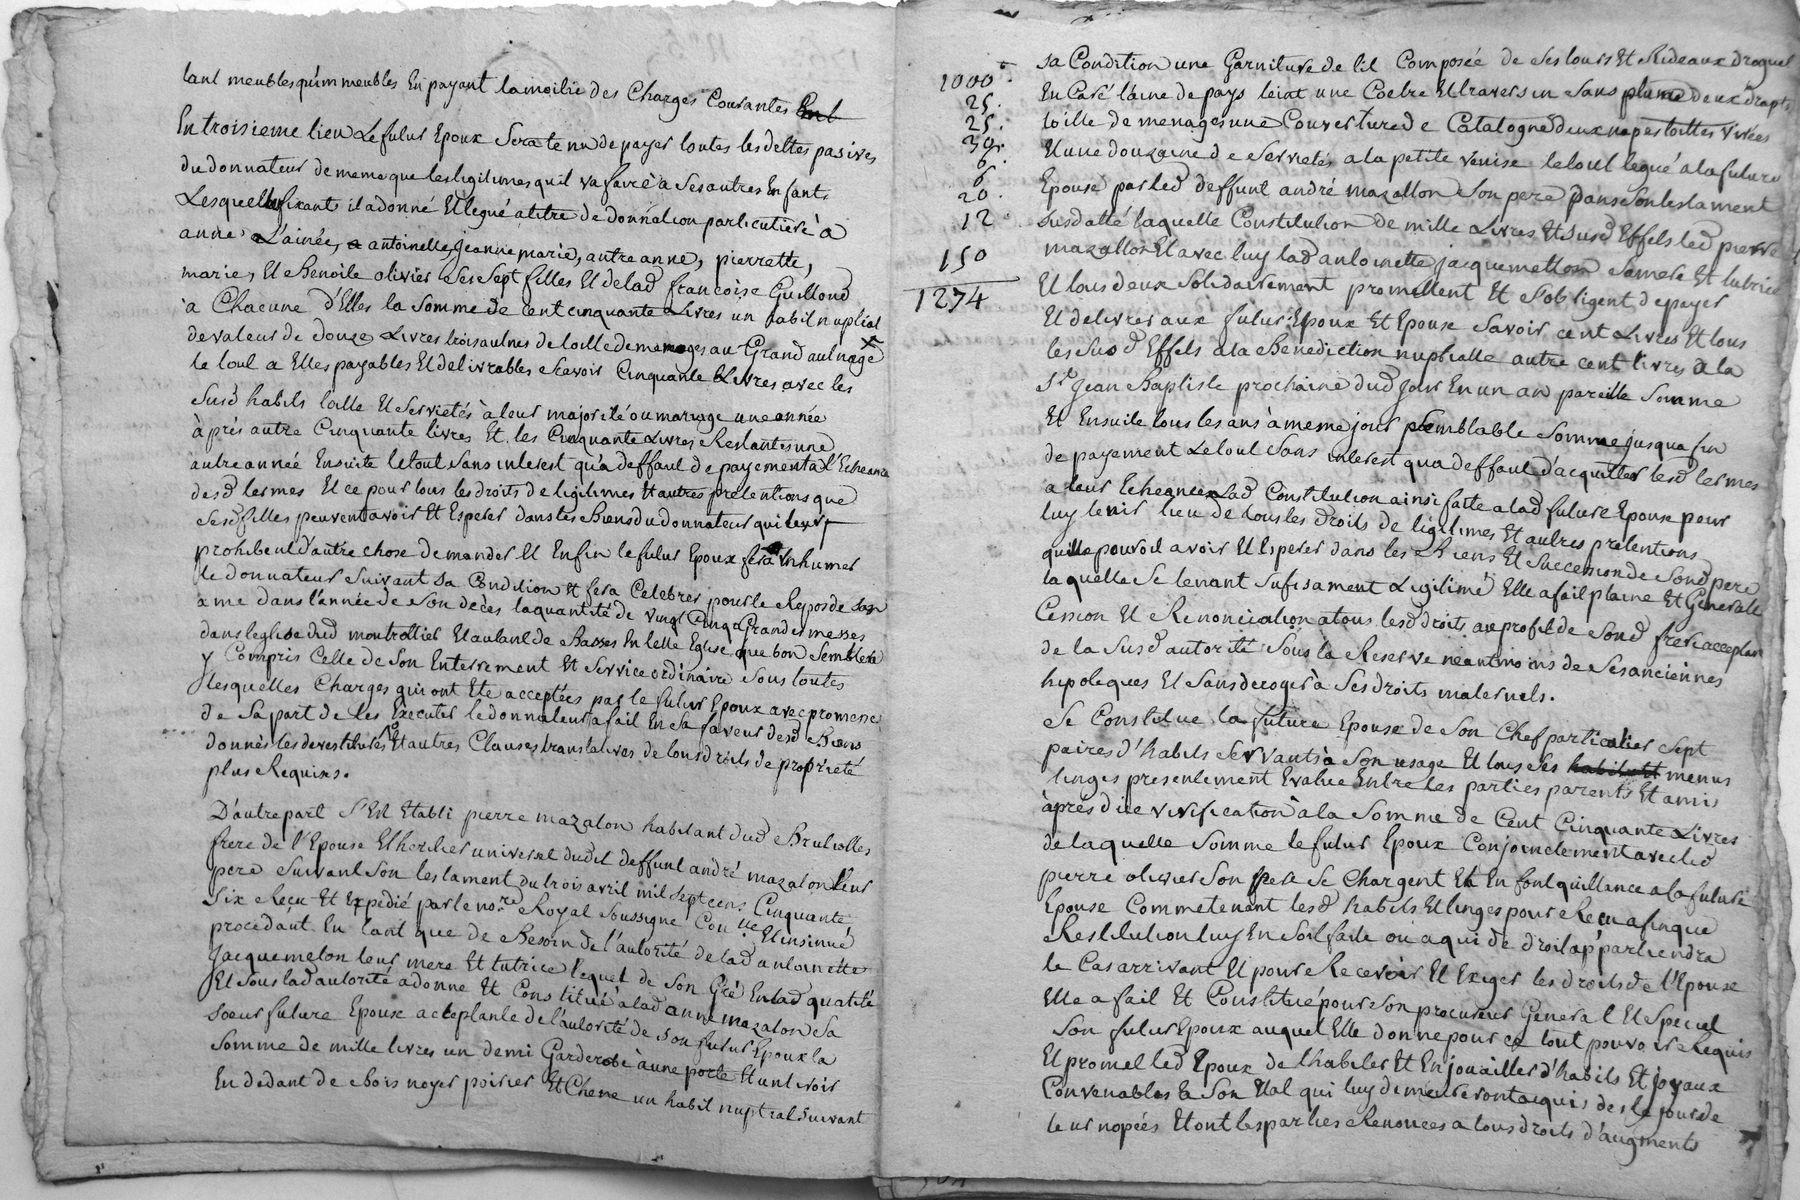 tant meubles qu'immeubles En payant la moitié des Charges Courantes
En troisieme lieu Le futur Epoux Sera tenu de payer toutes les dettes pasives
du donnateur de meme que les ligitimes qu'il va faire à Ses autres Enfants
Lesquell fixants il a donné Et legué a titre de donnation particuliere à
anne L'ainée, antoinette, jeanne marie, autre anne, pierrette,
marie, Et Benoite olivier Ses Sept filles Et de lad francoise Guillond
à Chacune d'Elles la Somme de Cent cinquante Livres un habit nuptial
de valeur de douze Livres trois aulnes de toille de menages au Grand aulnage
le tout a Elles payables Et delivrables Scavoir Cinquante Livres avec les
Susd habits toille Et Servietés à leur majorité ou mariage une année
àprès autre Cinquante livres Et les Cinquante Livres Restantes une
autre année Ensuite le tout Sans interest qu'a deffaut de payement a l'Echeance
desd termes Et ce pour tous les droits de ligitimes Et autres pretentions que
Sesd filles peuvent avoir Et Esperer dans les Biens du donnateur qui leur
prohibent d'autre chose demander Et Enfin le futur Epoux fera Inhumer
le donnateur Suivant Sa Condition Et fera Celebrer pour le Repos de Son
ame dans l'année de Son decès la quantité de vingt Cinq Grandes messes
dans leglise dud montrottier Et autant de Basses En telle Eglise que bon Semblera
y Compris Celle de Son Enterrement Et Service ordinaire Sous toutes
lesquelles Charges qui ont Eté acceptées par le futur Epoux avec promesse
de Sa part de les Executer le donnateur a fait En Sa faveur desd Biens
donnés les devestitures Et autres Clauses translatives de tous droits de proprieté
plus Requins.
D'autre part S'Est Etabli pierre mazalon habitant dud Brullolles
frere de l'Epouse Et heritier universel dudit deffunt andré mazalon leur
pere Suivant Son testament du trois avril mil Sept cens Cinquante
Six Recu Et Expedié par le no.re Royal Soussigné Con.lle Et insinué
procedant En tant que de Besoin de l'autorité de lad antoinette
Jacquemeton leur mere Et tutrice lequel de Son Gré En lad qualité
Et Sous lad autorité a donne Et Constitué a lad anne mazalon Sa
Soeur future Epouse acceptante de l'autorité de Son futur Epoux la
Somme de mille livres un demi Garderobe à une porte Et un tiroir
En dedant de Bois noyer poirier Et Chene un habit nuptial Suivant
1000.
25.
25.
30.
6.
6.
20.
12
150
1274
Sa Condition une Garniture de lit Composée de Ses tours Et Rideaux droguet
En Caré laine de pays teint une Coetre Et travers in Sans plume deux drapts
toille de menages une Couverture de Catalogne deux napes toittes virées
Et une douzaine de Servietes a la petite venise le tout legué a la future
Epouse par led deffunt andré mazallon Son pere dans Son testament
Susdatté laquelle Constitution de mille Livres Et Susd Effets led pierre
mazallon Et avec luy lad antoinette jacquemetton Sa mere Et tutrice
Et tous deux Solidairement promettent Et S'obligent de payer
Et delivrer aux futur Epoux Et Epouse Savoir cent Livres Et tous
les Susd Effets a la Benediction nuptialle autre cent livres a la
St Jean Baptiste prochaine dud jour En un an pareille Somme
Et Ensuite tous les ans à meme jour Semblable Somme jusqua fin
de payement Le tout Sans interest qua deffaut d'acquitter lesd termes
a leur Echeance Lad Constitution ainsi faite a lad future Epouse pour
luy tenir lieu de tous les droits de ligitimes Et autres pretentions
quelle pouroit avoir Et Esperer dans les Biens Et Succession de Sond pere
laquelle Se tenant Sufisament Ligitimé Elle a fait plaine Et Generalle
Cession Et Renonciation a tous lesd droits au profit de Sond frere acceptant
de la Susd autorité Sous la Reserve neantmoins de Ses anciennes
hipoteques Et Sans deroger à Ses droits maternels.
Se Constitue la future Epouse de Son Chef particulier Sept
paires d'habits Servants à Son usage Et tous Ses menus
linges presentement Evalué Entre les parties parents Et amis
àprès due verification à la Somme de Cent Cinquante Livres
de laquelle Somme le futur Epoux Conjoinctement avec led
pierre olivier Son pere Se Chargent Et En font quittance a la future
Epouse Comme tenant lesd habits Et linges pour Recu afin que
Restitution luy En Soit faite ou a qui de droit ap'partiendra
le Cas arrivant Et pour Recevoir Et Exiger les droits de l'Epouse
Elle a fait Et Constitué pour Son procureur General Et Special
Son futur Epoux auquel Elle donne pour ce tout pouvoir Requis
Et promet led Epoux de l'habiler Et Enjouailler d'habits Et joyaux
Convenables a Son Etat qui luy demeureront acquis des le jour de
leur nopces Et ont les parties Renoncées a tous droits d'augments